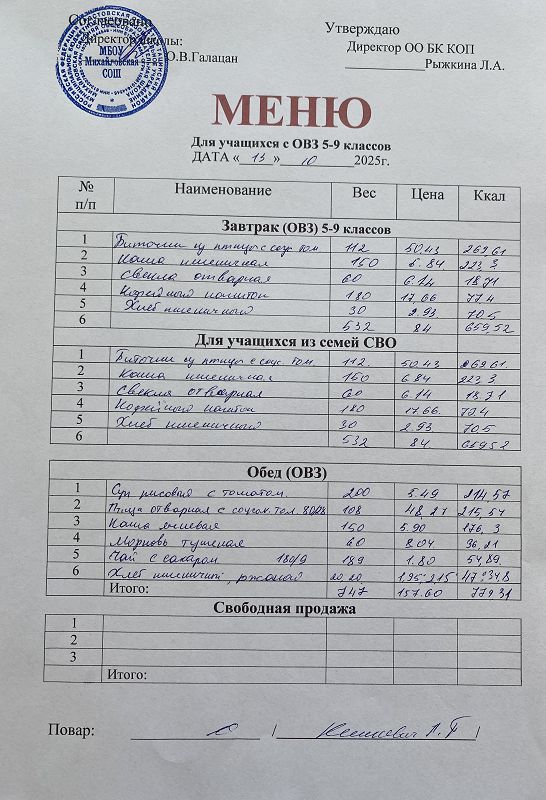 Согласовано
Директор школы:
О.В.Галацан
МБОУ
Михайловская
СОШ
Утверждаю
Директор ОО БК КОП
Рыжкина Л.А.
МЕНЮ
Для учащихся с ОВЗ 5-9 классов
ДАТА « 13 » 10 2025г.
№ п/п Наименование Вес Цена Ккал
Завтрак (ОВЗ) 5-9 классов
1 Биточки из птицы с соус. том. 112 50.43 269.61
2 Каша пшеничная 150 6.84 223,3
3 Свекла отварная 60 6.14 18.71
4 Кофейный напиток 180 17,66 77.4
5 Хлеб пшеничный 30 2.93 70.5
6 532 84 659.52
Для учащихся из семей СВО
1 Биточки из птицы с соус. том. 112 50.43 269.61
2 Каша пшеничная 150 6.84 223,3
3 Свекла отварная 60 6.14 18.71
4 Кофейный напиток 180 17.66 77.4
5 Хлеб пшеничный 30 2.93 70.5
6 532 84 659.52
Обед (ОВЗ)
1 Суп рисовый с томатом 200 5.49 214.57
2 Птица отварная с соусом том. 108 48.27 215,54
3 Каша ячневая 150 5.90 176,3
4 Морковь тушеная 60 8.04 36,21
5 Чай с сахаром 180/9 189 1.80 54,89
6 Хлеб пшеничный, ржаной 20.20 1,95 2,15 47 34,8
Итого: 747 157.60 779.31
Свободная продажа
1
2
3
Итого:
Повар: